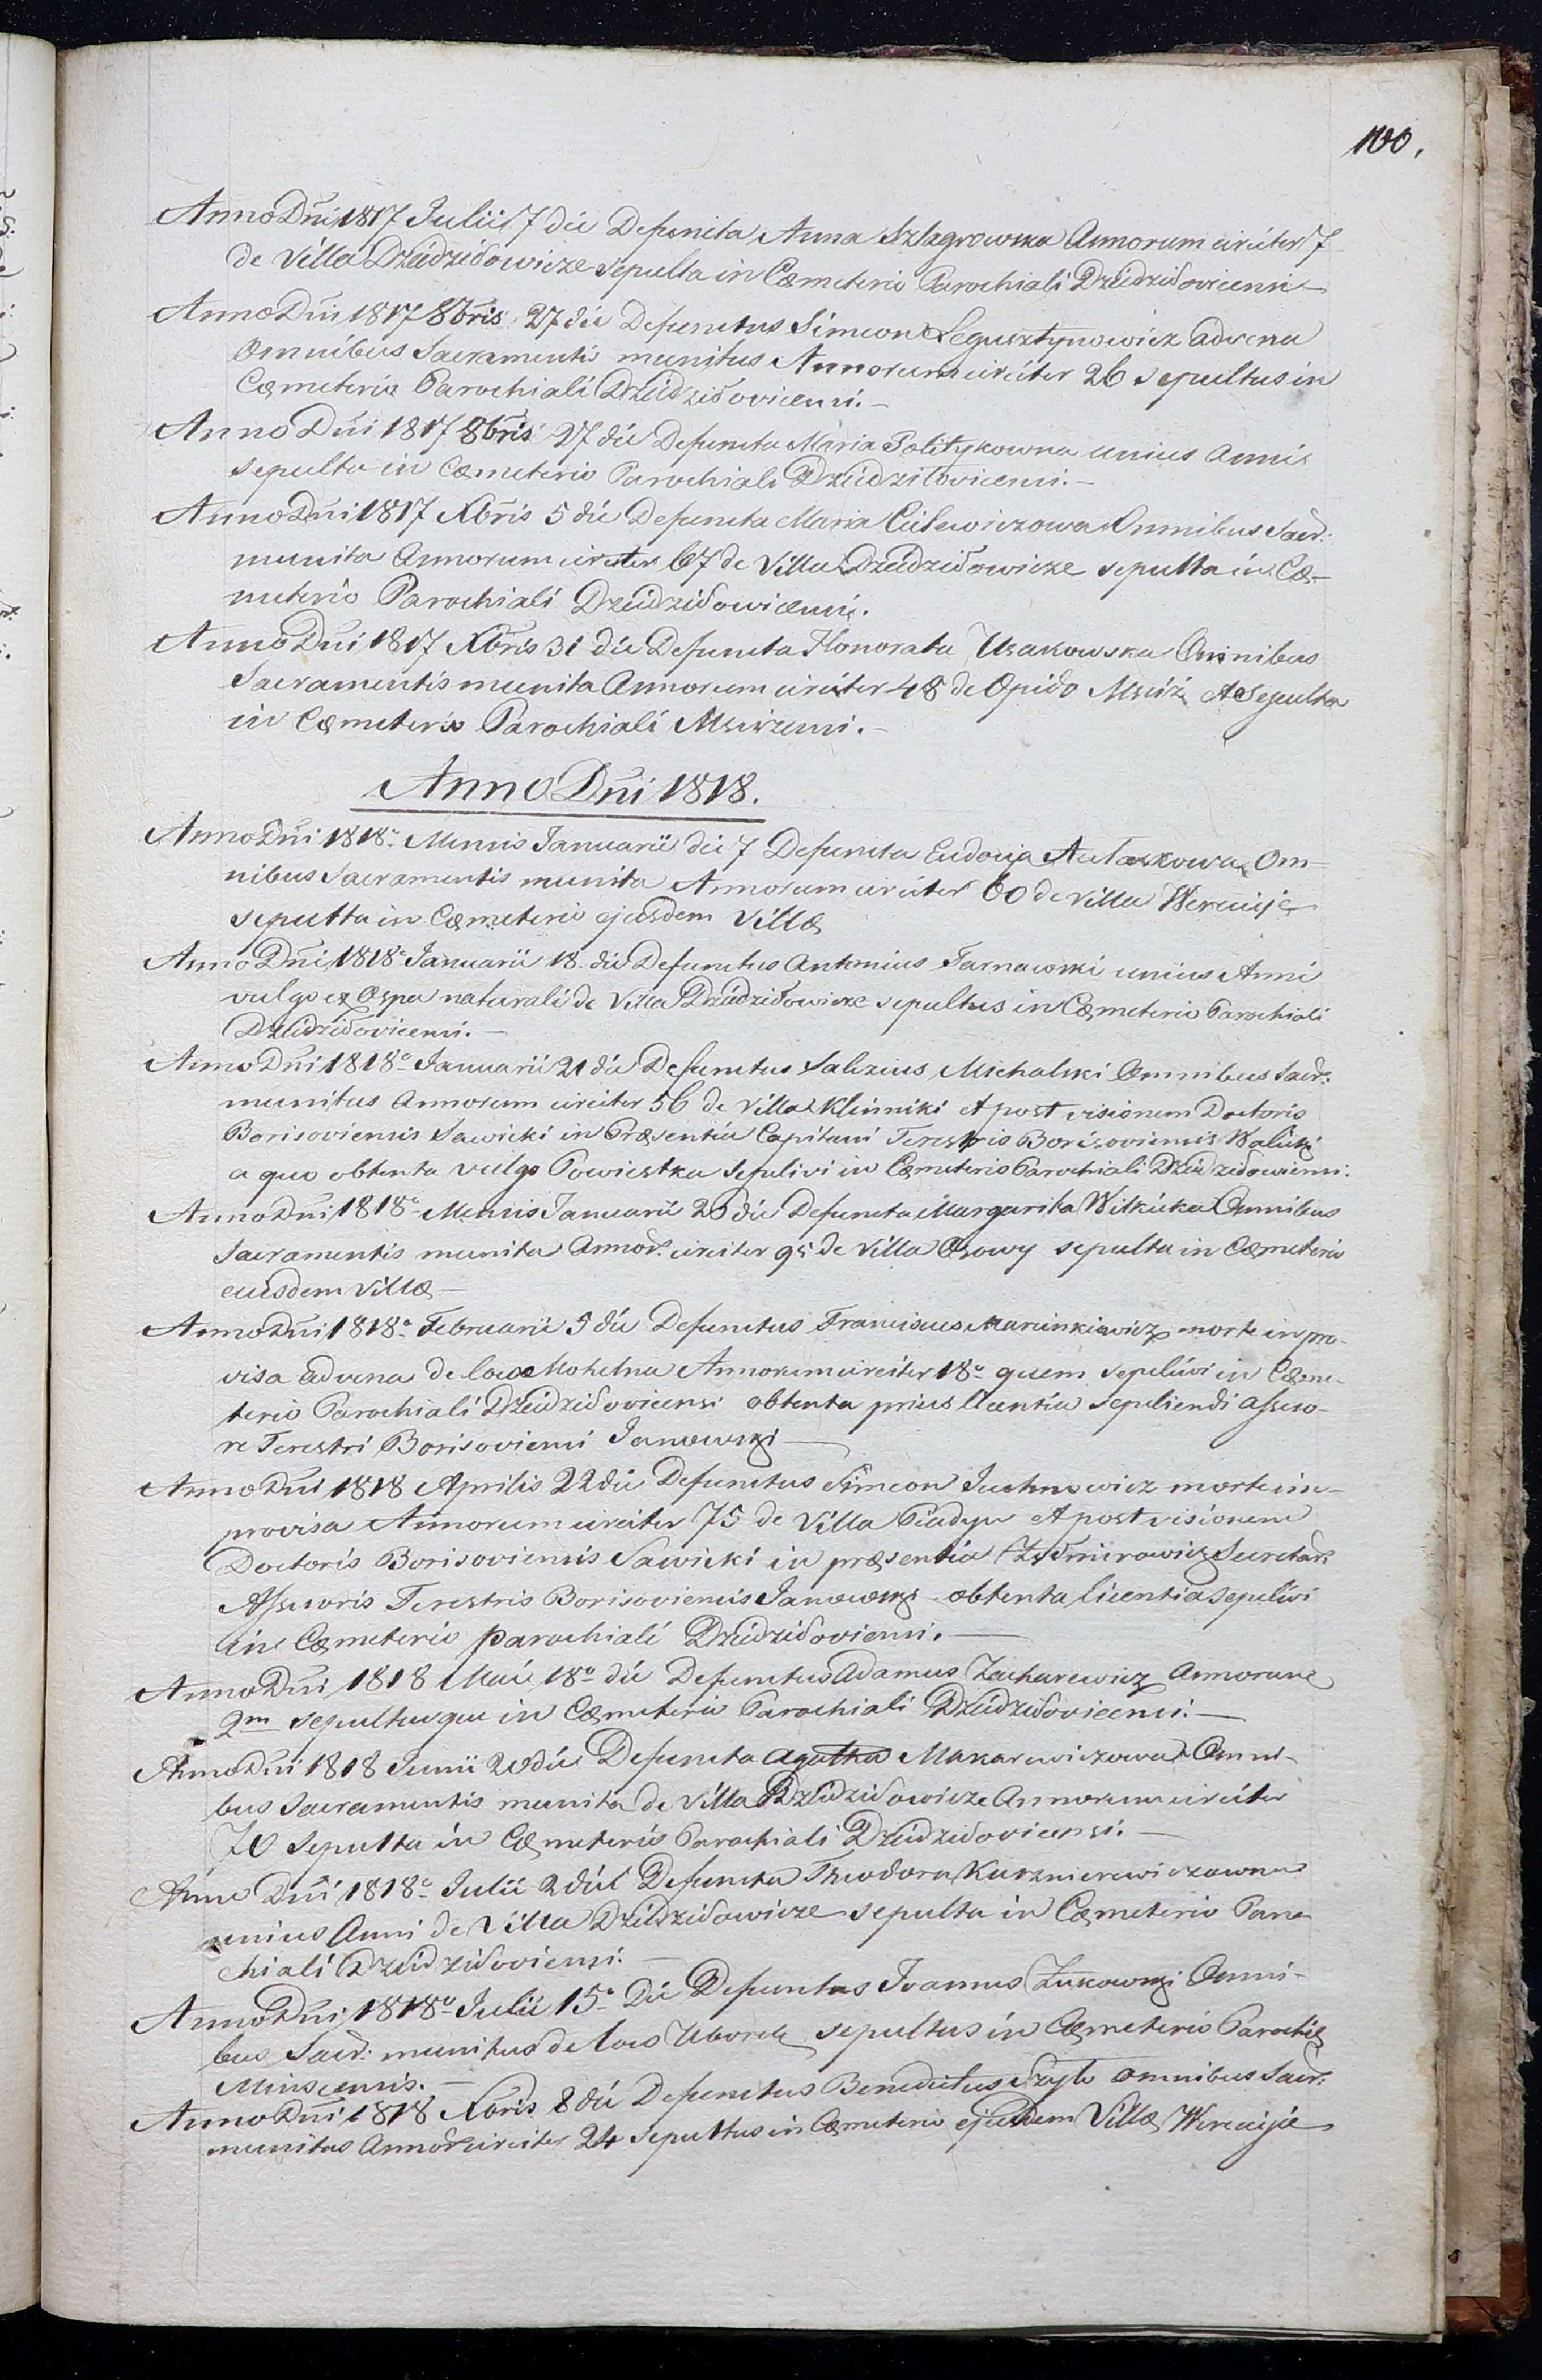 100.
Anno Dñi 1817 Julii 7 die Defuncta Anna Szlagrowska Annorum circiter 7
de Villa Dziedziłowicze sepulta in Cæmeterio Parochiali Dziedziłovicensi
Anno Dñi 1817 8bris 27 die Defunctus Simeon Legusztynowicz advena
Omnibus Sacramentis munitus Annorum circiter 26 sepultus in
Cæmeterio Parochiali Dziedziłovicensi.
Anno Dñi 1817 8bris 27 die Defuncta Maria Politykowna unius Anni
sepulta in Cæmeterio Parochiali Dziedziłovicensi.
Anno Dñi 1817 Xbris 5 die Defuncta Maria Omnibus Sacr:
munita Annorum circiter 67 de Villa Dziedziłowicze sepulta in Cæ-
meterio Parochiali Dziedziłowicensi.
Anno Dñi 1817 Xbris 31 die Defuncta Honorata Usakowska Omnibus
Sacramentis munita Annorum circiter 48 de Opido Mściż Asepulta
in Cæmeterio Parochiali Mscizensi.
Anno Dñi 1818.
Anno Dñi 1818º Mensis Januarii die 7 Defuncta Eudocija Om-
nibus Sacramentis munita Annorum circiter 60 de Villa Wereicije
sepulta in Cæmeterio ejusdem Villæ
Anno Dñi 1818º Januarii 18 die Defunctus Antonius Tarnawski unius Anni
vulgo ex Ospa naturali de Villa Dziedziłowicze sepultus in Cæmeterio Parochiali
Dziedziłovicensi.
Anno Dñi 1818º Januarii 21 die Defunctus Salezius Michalski Omnibus Sacr:
munitus Annorum circiter 56 de Villa Klinniki A post visionem Doctoris
Borisoviensis Sawicki in Præsentia Capitani Terestris Borisoviensis Walicki
a quo obtenta vulgo Powiestka Sepelivi in Cæmeterio Parochiali Dziedziłowiensi.
Anno Dñi 1818º Mensis Januarii 25 die Defuncta Margarita Witkicka Omnibus
Sacramentis munita Annor. circiter 95 de Villa Osowy sepulta in Cæmeterio
eiusdem Villæ
Anno Dñi 1818º Februarii 5 die Defunctus Franciscus Marcinkiewicz morte inpro-
visa advena de loco Mohelna Annorum circiter 18º quem sepelivi in Cæme-
terio Parochiali Dziedziłovicensi obtenta prius licentia sepeliendi Assesso-
re Terestri Borisoviensi Janowski
Anno Dñi 1818 Aprilis 22 die Defunctus Simeon Juchnowicz morte im-
provisa Annorum circiter 75 de Villa A post visionem
Doctoris Borisoviensis Sawicki in præsentia Secretar:
Assessoris Terestris Borisoviensis Janowski obtenta licentia sepelivi
in Cæmeterio parochiali Dziedziłoviensi.
Anno Dñi 1818 Maii 18º die Defunctus Adamus Zacharewicz Annorum
2m sepultusque in Cæmeterio Parochiali Dziedziłovicensi.
Anno Dñi 1818 Junii 20 die Defuncta Agatha Makarewiczowa Omni-
bus Sacramentis munita de Villa Dziedziłowicze Annorum circiter
70 Sepulta in Cæmeterio Parochiali Dziedziłovicensi.
Anno Dñi 1818º Julii 2 die Defuncta Theodora Kuzmierewiczowna
unius Anni de Villa Dziedziłowicze sepulta in Cæmeterio Paro
chiali Dziedziłoviensi.
Anno Dñi 1818º Julii 15º Die Defunctus Ioannus Żukowski Omni-
bus Sacr: munitus de loco Uborek sepultus in Cæmeterio Parochiæ
Minscensis.
Anno Dñi 1818 Xbris 8 die Defunctus Benedictus Szyło omnibus Sacr:
munitus Annor. circiter 24 Sepultus in Cæmeterio ejusdem Villæ Wereicije